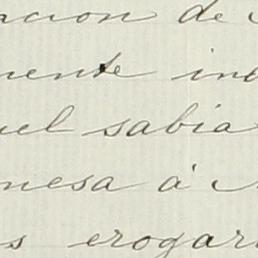 acion de
mente ind
uel sabia
mesa á
s erogar